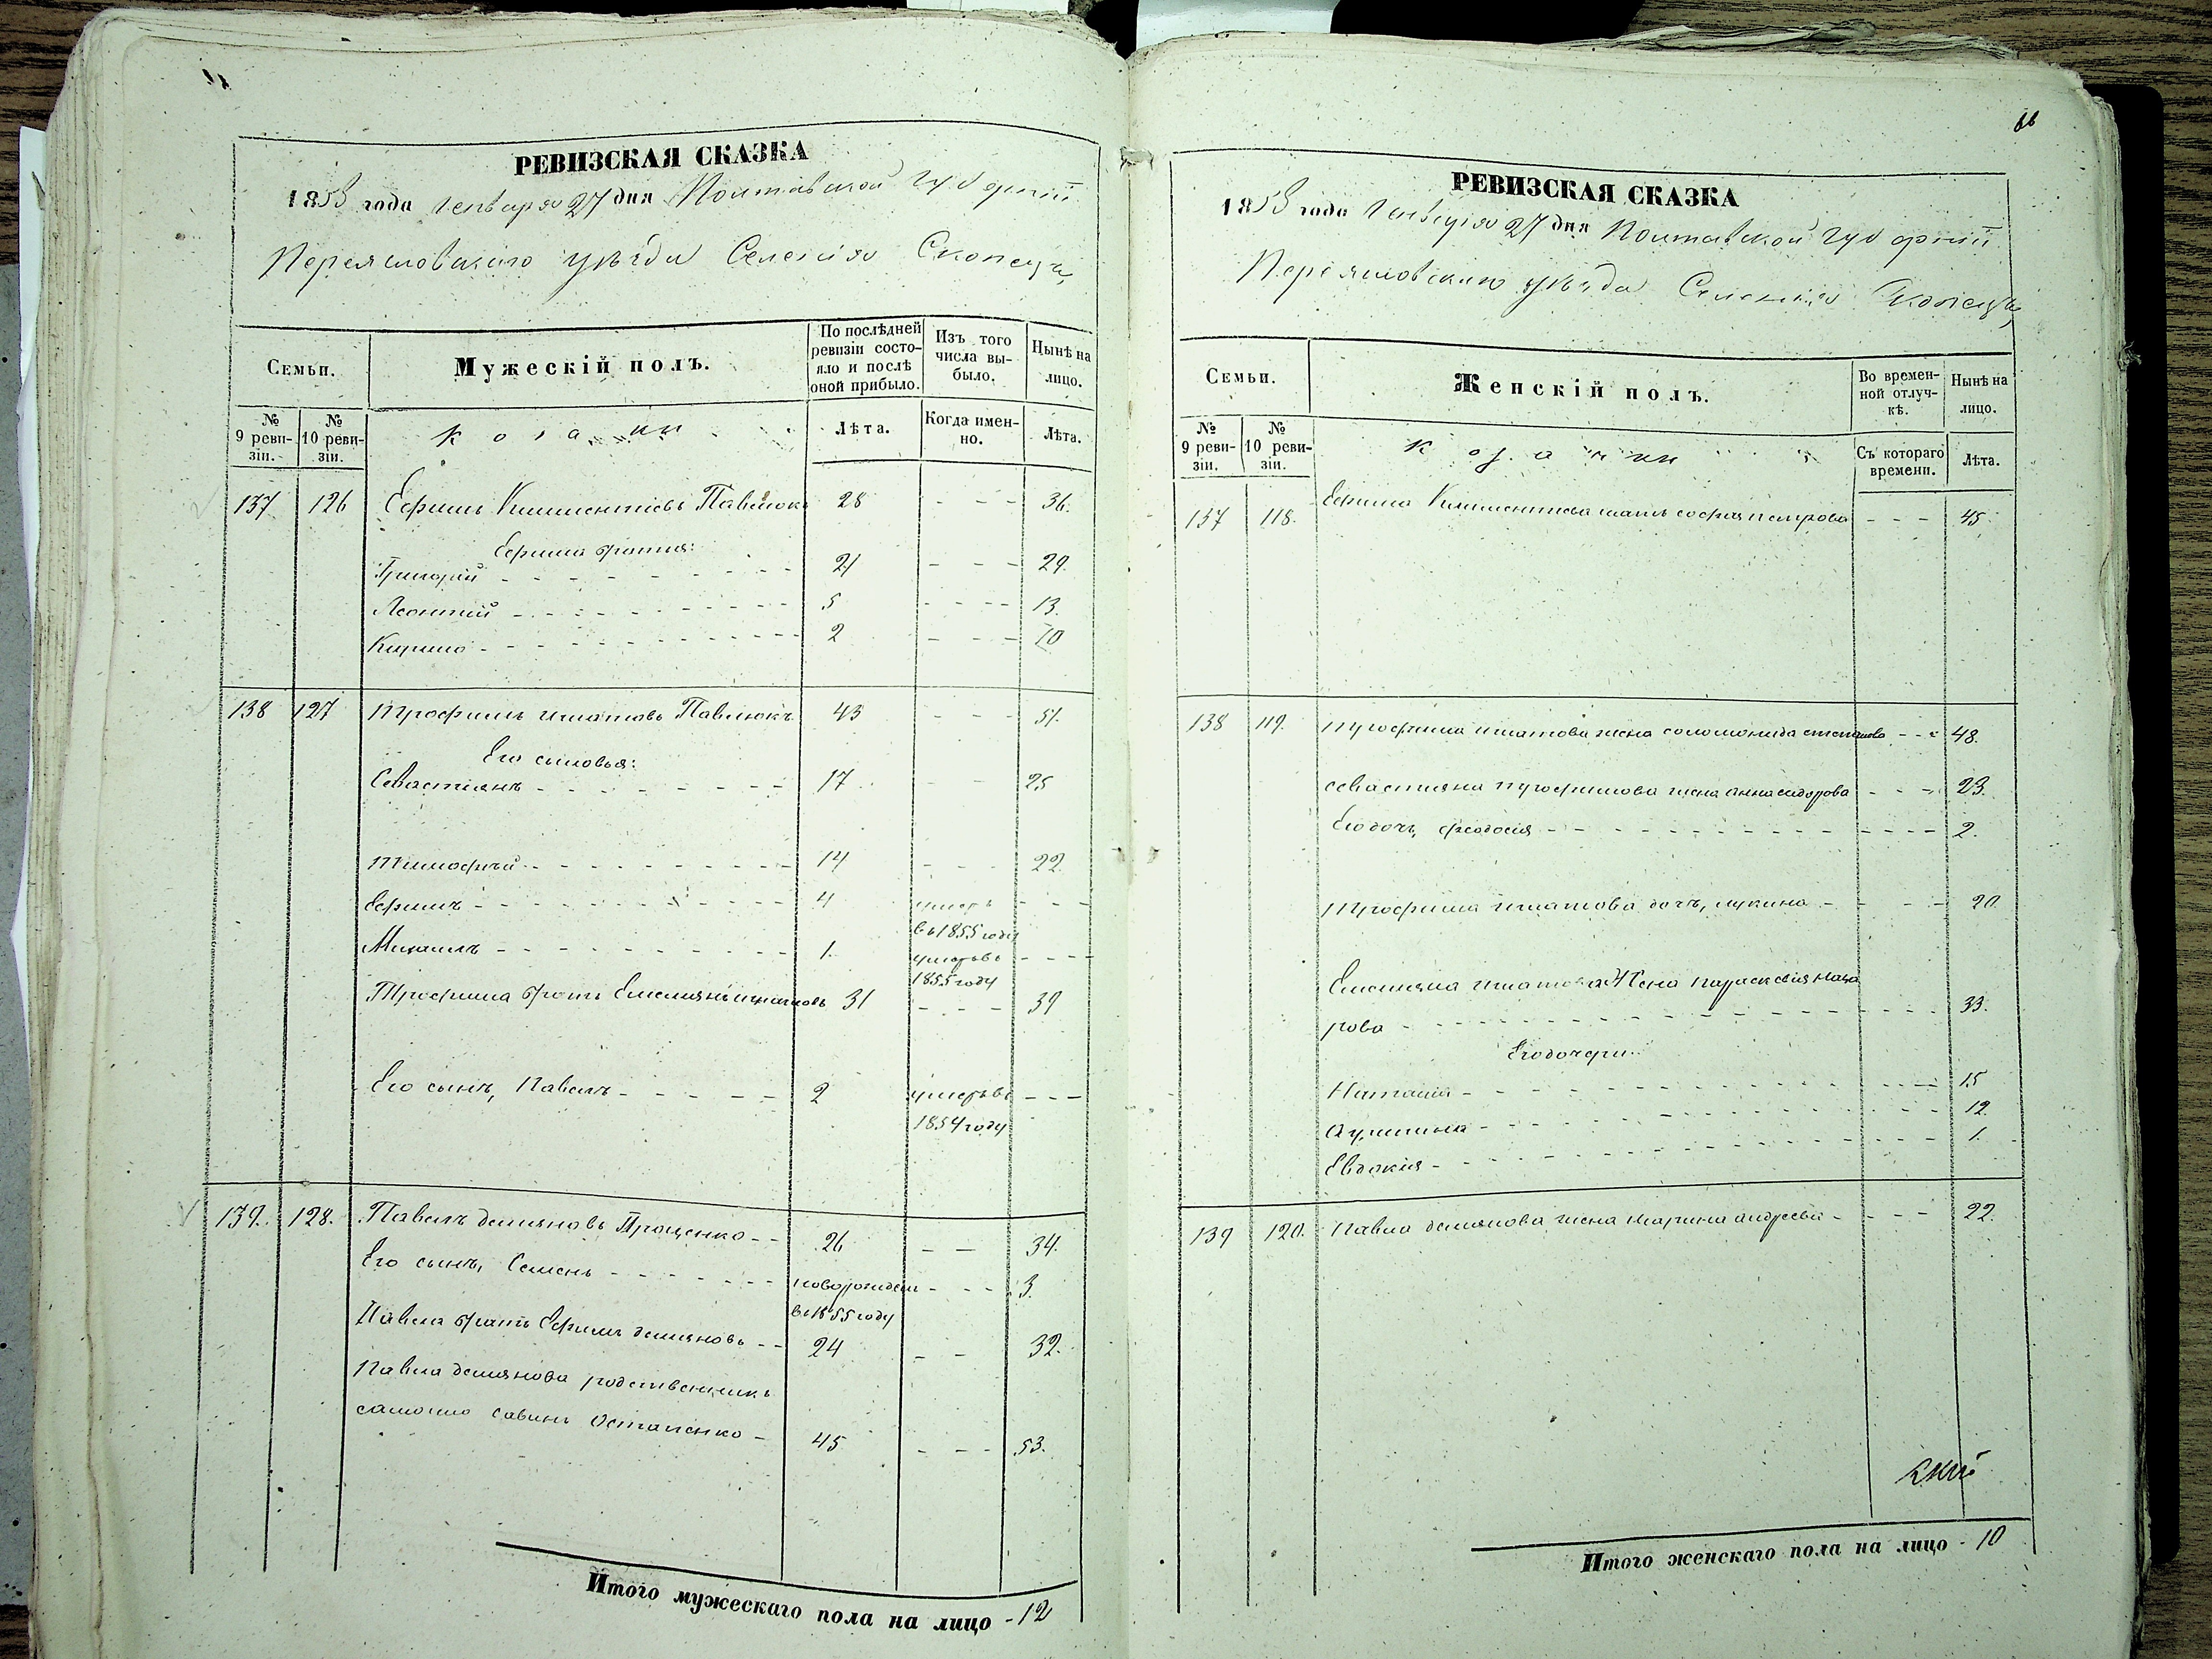 РЕВИЗСКАЯ СКАЗКА
1858 года Генваря 27 дня Полтавской губерніи
Переяславскаго уѣзда Селенія Скопецъ,
Семьи.
Мужескій полъ.
По послѣдней ревизіи состояло и послѣ оной прибыло.
Изъ того числа выбыло.
Нынѣ на лицо.
№ 9 ревизіи.
№ 10 ревизіи.
Козаки
Лѣта.
Когда именно.
Лѣта.
137 126 Ефимъ Климентіевъ Павлюкъ 28 - - - 36.
Ефима братья:
Григорій - - - 21 - - - 29.
Леонтій - - - 5 - - - 13.
Кирило - - - 2 - - - 10
138 127 Трофимъ Игнатовъ Павлюкъ 43 - - - 51.
Его сыновья:
Севастіянъ - - - 17 - - 25
Тимофѣй - - - 14 - - - 22.
Ефимъ - - - 4 умеръ - - -
въ 1855 году
Михаилъ - - - 1. умеръ въ - - -
1855 году
Трофима братъ Емельянъ Игнатовъ 31 - - - 39
Его сынъ, Павелъ - - - 2 умеръ въ - - -
1854 году
139. 128. Павелъ Демяновъ Троценко - - 26 - - 34.
Его сынъ, Семенъ - - - новорожден - - - 3.
въ 1855 году
Павла братъ Ефимъ Демяновъ - - 24 - - 32.
Павла Демянова родственникъ
Самойло Савинъ Остапенко - 45 - - - 53.
Итого мужескаго пола на лицо - 12
66
РЕВИЗСКАЯ СКАЗКА
1858 года Генваря 27 дня Полтавской губерніи
Переяславскаго уѣзда Селенія Скопецъ,
Семьи.
Женскій полъ.
Во временной отлучкѣ.
Нынѣ на лицо.
№ 9 ревизіи.
№ 10 ревизіи.
Козачки
Съ котораго времени.
Лѣта.
137 118. Ефима Климентіева мать Софія Петрова - - - 45.
138 119. Трофима Игнатова жена Соломонида Степанова - - - 48.
Севастіяна Трофимова жена Анна Сидорова - - - 23.
Его дочь, Феодосія - - - 2.
Трофима Игнатова дочь, - - - 20
Емельяна Игнатова Жена Параскевія Наза
рова - - - 33.
Его дочери:
Наталія - - - 15
- - - 12.
Евдокія - - - 1.
139 120. Павла Демянова жена Марина Андреева - - - - 22.
Итого женскаго пола на лицо - 10